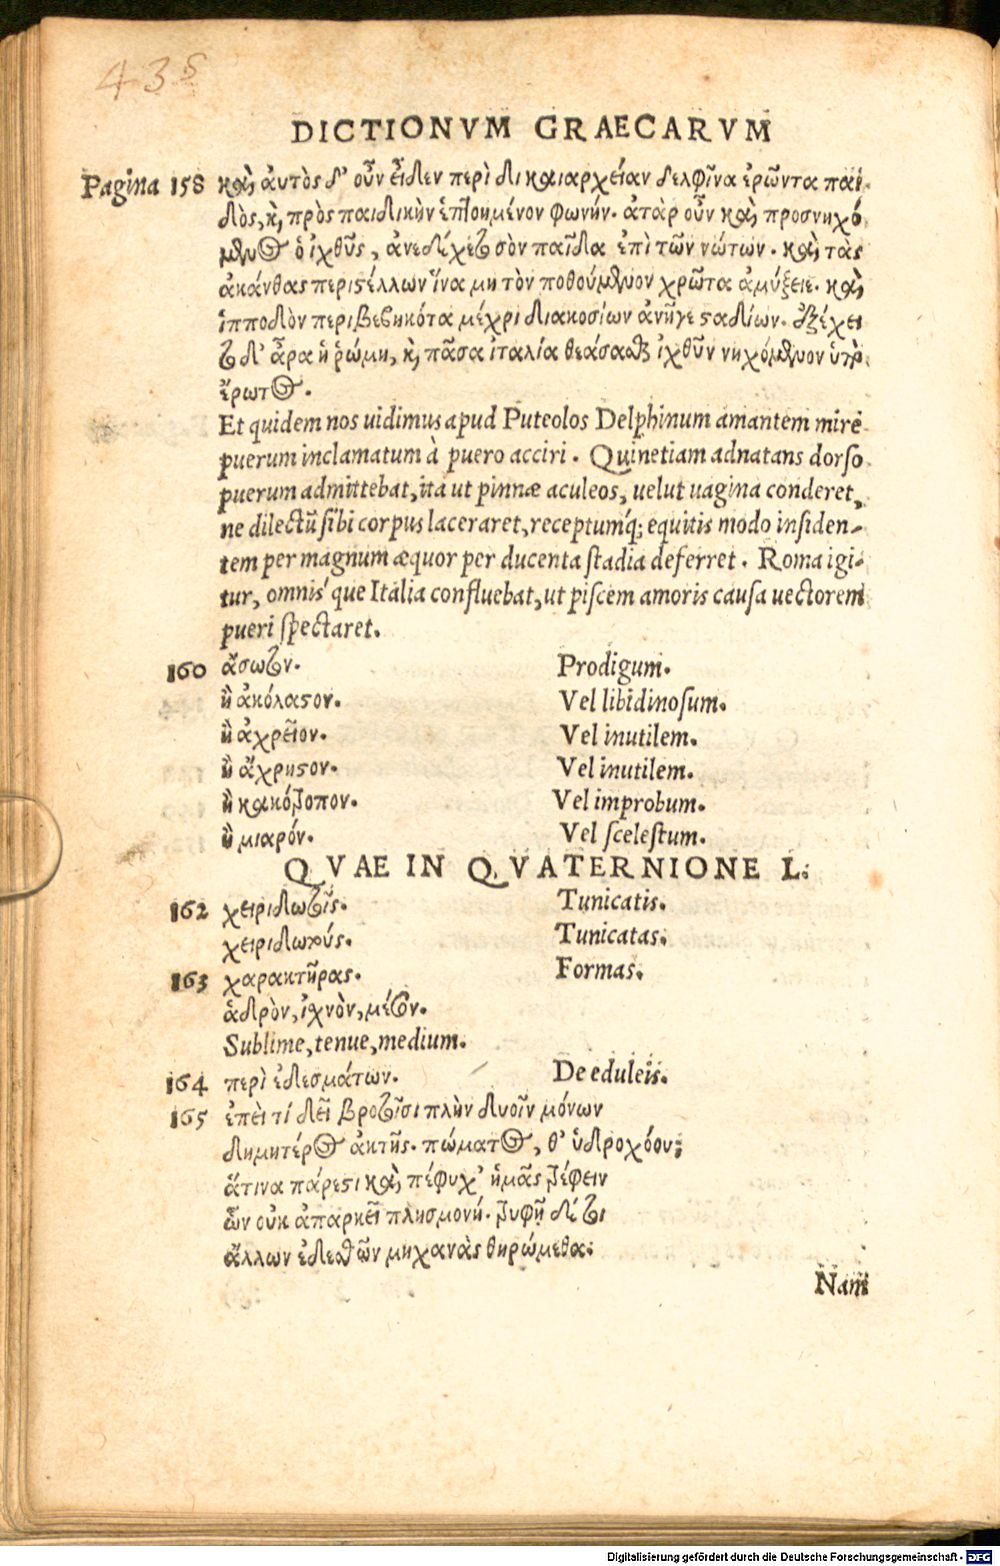 43 S
DICTIONVM GRAECARVM
Pagina 158 καὶ ἀυτὸς δ' οὖν εἶδεν περὶ δικαιαρχείαν δελφῖνα ἐρῶντα παι
δὸς, κὶ πρὸς παιδικὴν ἐπτοημένον φωνήν. ἀτὰρ οὖν καὶ προσνηχό
μενος ὁ ἰχθῦς, ἀνεδέχετο σὸν παῖδα ἐπὶ τῶν νώτων. καὶ τὰς
ἀκάνθας περιςέλλων ἵνα μη τὸν ποθούμενον χρῶτα ἀμύξειε. καὶ
ἱπποδὸν περιβεβηκότα μέχρι διακοσίων ἀνῆγε ςαδίων. ἐξέχει
το δ' ἆρα ἡ ῥώμη, κὶ πᾶσα ἰταλία θεάσαθαι ἰχθῦν νηχόμενον ὑπὸ
ἔρωτος.
Et quidem nos uidimus apud Puteolos Delphinum amantem mire
puerum inclamatum à puero acciri. Quinetiam adnatans dorso
puerum admittebat, ita ut pinnæ aculeos, uelut uagina conderet,
ne dilectũ sibi corpus laceraret, receptumq́; equitis modo insiden-
tem per magnum æquor per ducenta stadia deferret. Roma igi-
tur, omnis' que Italia confluebat, ut piscem amoris causa uectorem
pueri spectaret.
160 ἄσωτον. Prodigum.
ἢ ἀκόλαςον. Vel libidinosum.
ἢ ἀχρεῖον. Vel inutilem.
ἢ ἄχρηςον. Vel inutilem.
ἢ κακότροπον. Vel improbum.
ἢ μιαρόν. Vel scelestum.
QVAE IN QVATERNIONE L.
162 χειριδωτοῖς. Tunicatis.
χειριδωτούς. Tunicatas.
163 χαρακτῆρας. Formas.
ἁδρὸν, ἰχνὸν, μέσον.
Sublime, tenue, medium.
164 περὶ ἐδεσμάτων. De eduleis.
165 ἐπεὶ τί δεῖ βροτοῖσι πλὴν δυοῖν μόνων
δημητέρος ἀκτῆς. πώματος, θ' ὑδροχόου;
ἅτινα πάρεςι καὶ πέφυχ' ἡμᾶς τρέφειν
ὧν οὐκ ἀπαρκεῖ πλησμονή. τρυφῇ δέ τοι
ἄλλων ἐδεςῶν μηχανὰς θηρώμεθα:
Nam
Digitalisierung gefördert durch die Deutsche Forschungsgemeinschaft - DFG